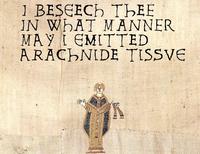 I BESEECH THEE
IN WHAT MANNER
MAY I EMITTED
ARACHNIDE TISSVE